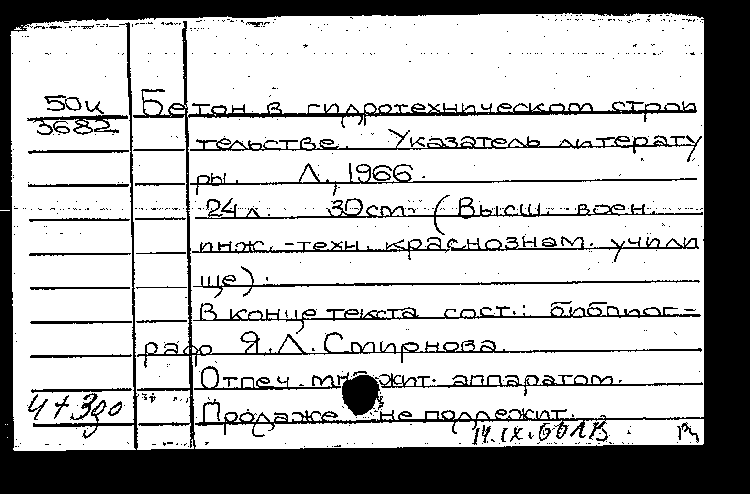 50и Бетон в гидротехническом строи
3682 тельстве. Указатель литерату
ры. Л., 1966.
24 л. 30 см. (Высш. воен.
инж.-техн. краснознам. учили
ще).
В конце текста сост.: библиог-
раф Я.Л. Смирнова.
Отпеч. множит. аппаратом.
Продаже не подлежит.